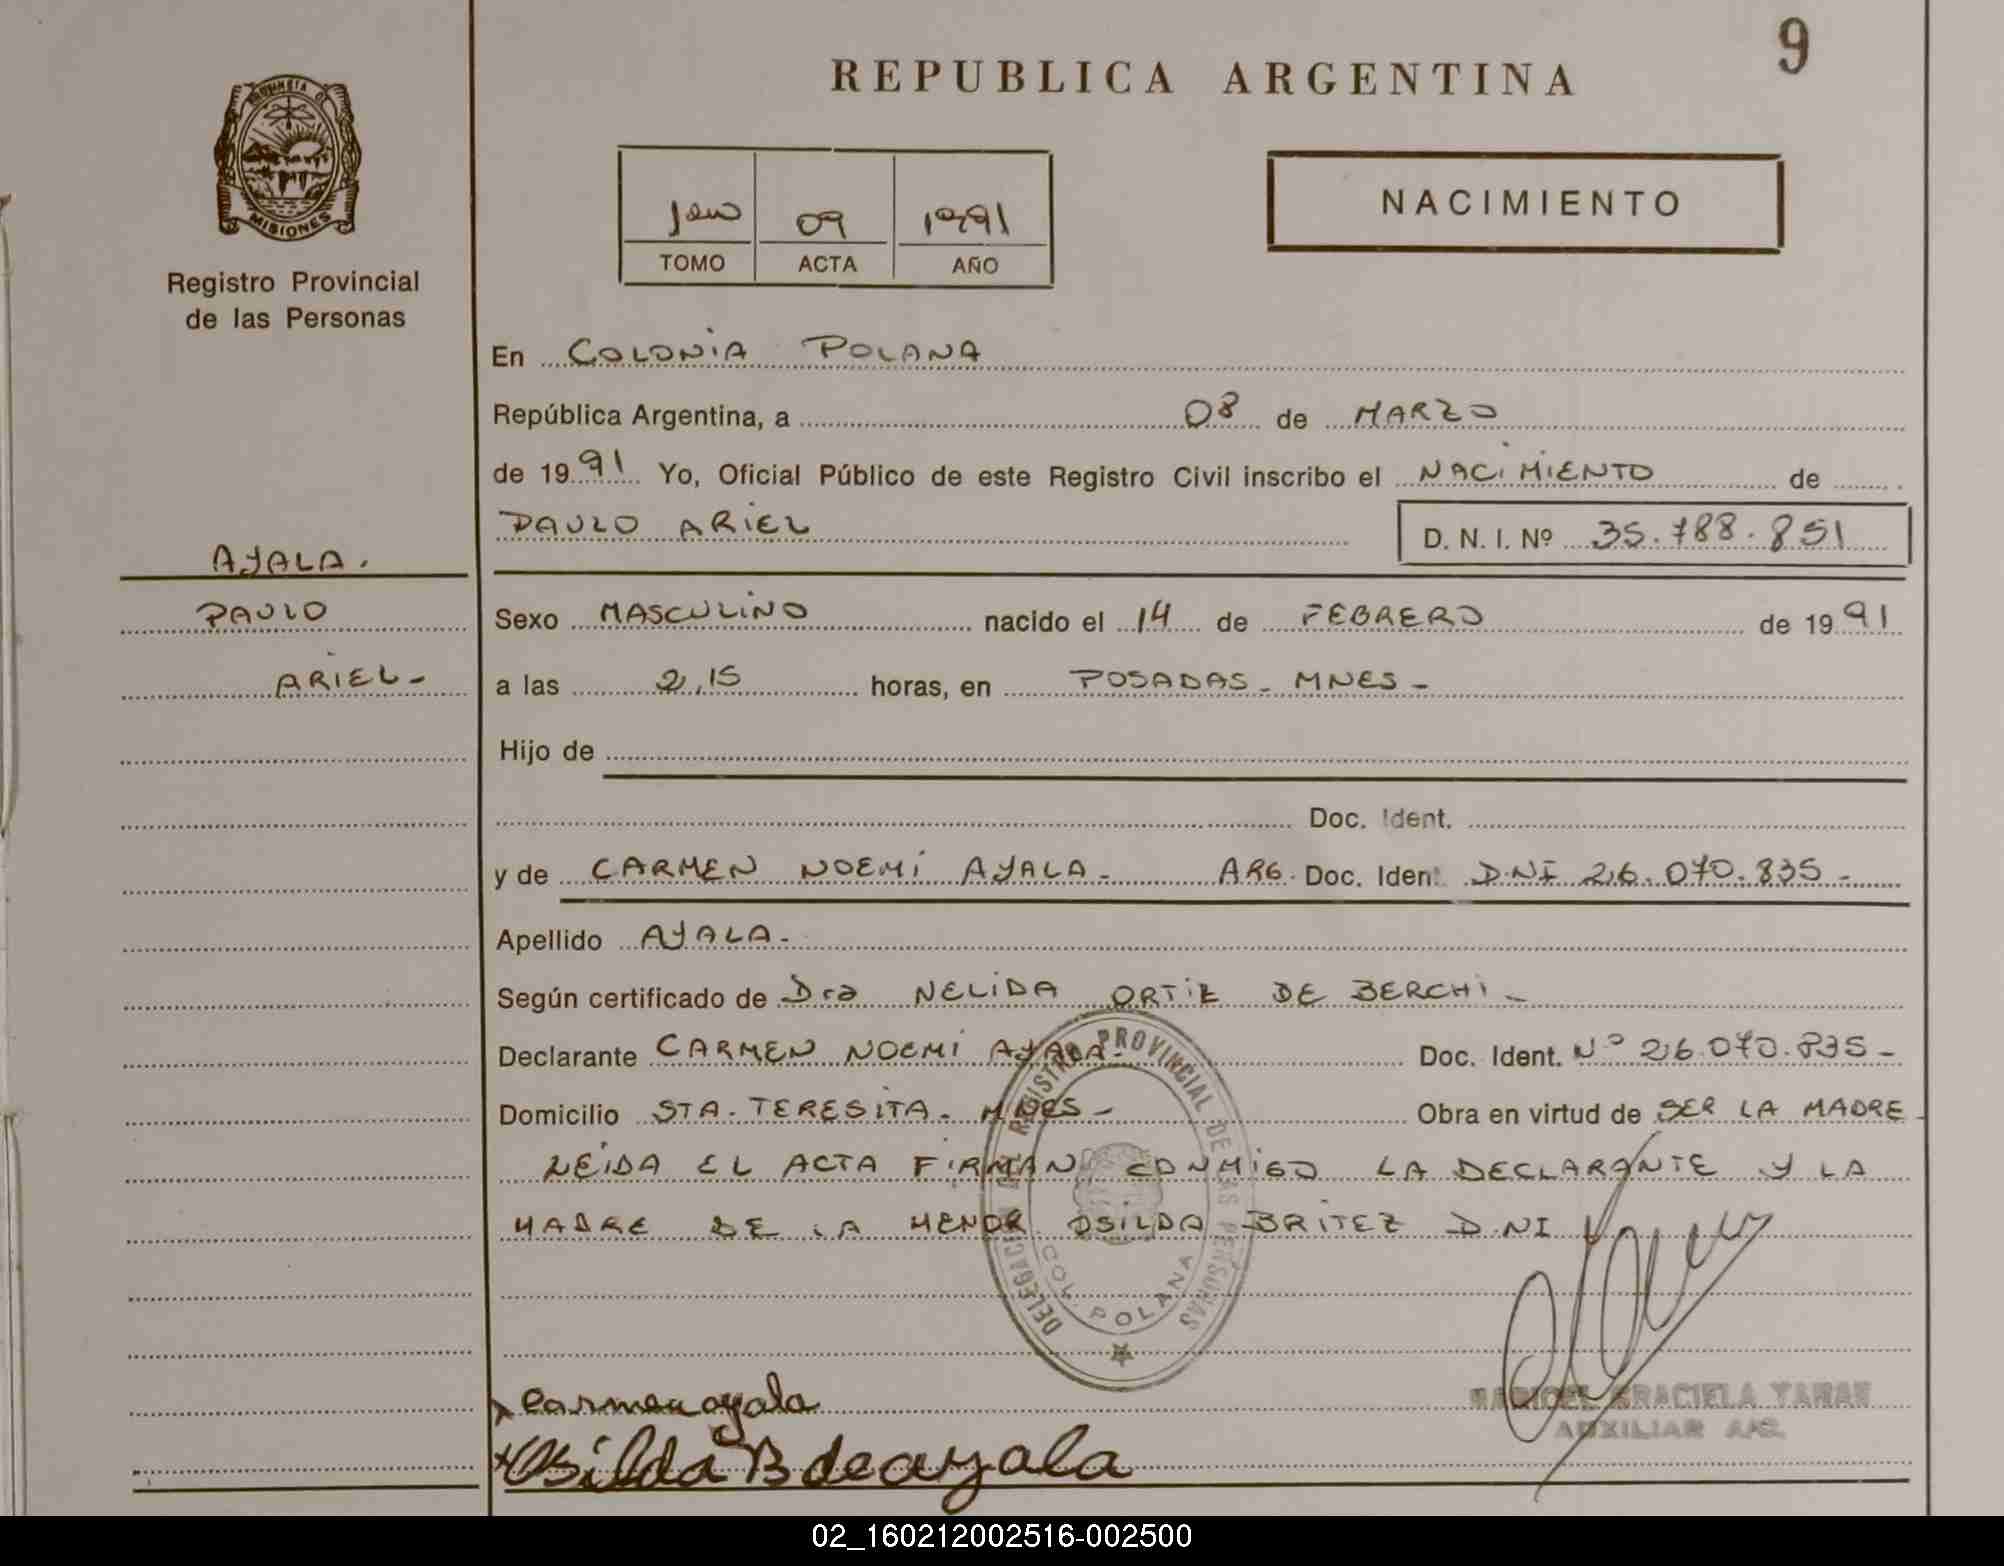 9
REPUBLICA ARGENTINA
PROVINCIA DE
MISIONES
Registro Provincial
de las Personas
09 1991
TOMO ACTA AÑO
NACIMIENTO
En COLONIA POLANA
República Argentina, a 08 de MARZO
de 1991 Yo, Oficial Público de este Registro Civil inscribo el NACIMIENTO de
PAULO ARIEL D. N. I. Nº 35.788.851
AYALA.
PAULO
ARIEL-
Sexo MASCULINO nacido el 14 de FEBRERO de 1991
a las 2,15 horas, en POSADAS - MNES -
Hijo de
Doc. Ident.
y de CARMEN NOEMI AYALA - ARG. Doc. Ident. DNI 26.070.835 -
Apellido AYALA -
Según certificado de Dra NELIDA ORTIZ DE BERCHI -
Declarante CARMEN NOEMI AYALA - Doc. Ident. Nº 26.070.835 -
Domicilio STA. TERESITA - MNES - Obra en virtud de SER LA MADRE -
LEIDA EL ACTA FIRMAN CONMIGO LA DECLARANTE Y LA
MADRE DE LA MENOR OSILDA BRITEZ D.NI
DELEGACION REGISTRO PROVINCIAL DE LAS PERSONAS
COL. POLANA
Carmen ayala
Osilda B de ayala
GRACIELA
AUXILIAR
02_160212002516-002500